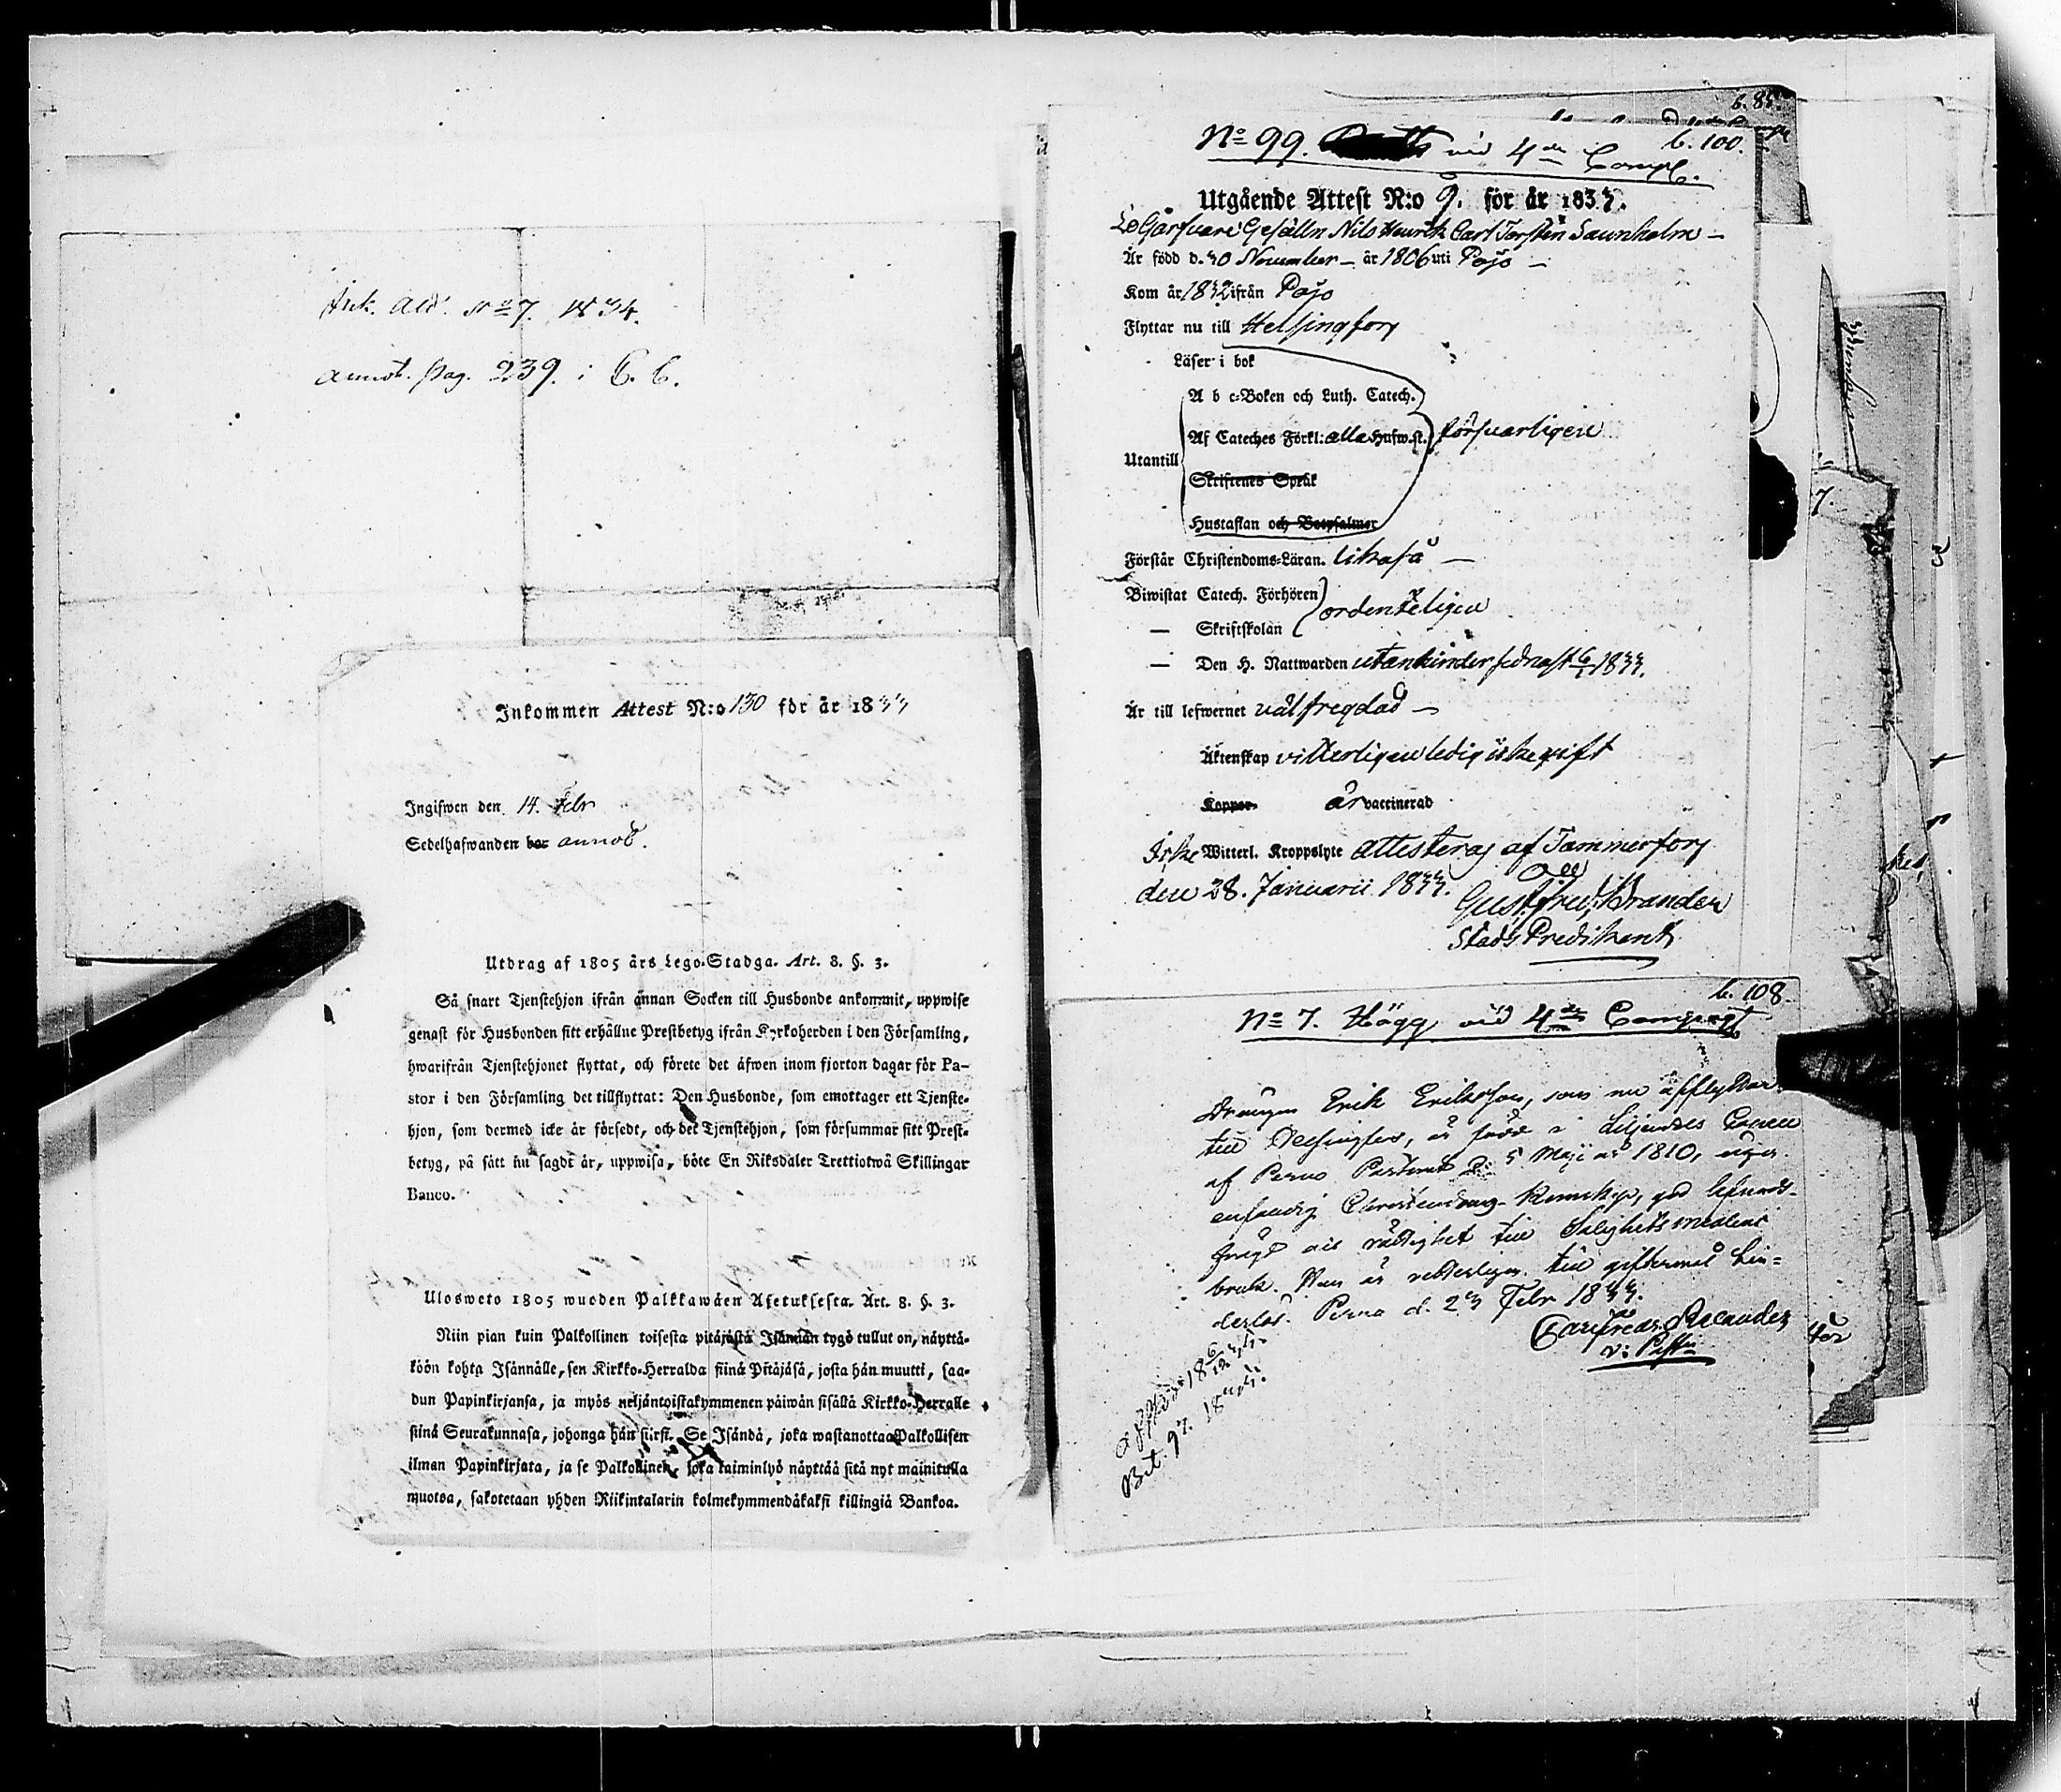 Ank. Att. No 7. 1834.
annot. pag. 239. i C. C.
Inkommen Attest N:o 130 för år 1833
Ingifwen den 14. Febr
Sedelhafwanden bor annot.
Utdrag af 1805 års Lego-Stadga. Art. 8. §. 3.
Så snart Tjenstehjon ifrån annan Socken till Husbonde ankommit, uppwise
genast för Husbonden sitt erhållne Prestbetyg ifrån Kyrkoherden i den Församling,
hwarifrån Tjenstehjonet flyttat, och förete det äfwen inom fjorton dagar för Pa-
stor i den Församling det tillflyttat: Den Husbonde, som emottager ett Tjenste-
hjon, som dermed icke är försedt, och det Tjenstehjon, som försummar sitt Prest-
betyg, på sätt nu sagdt är, uppwisa, böte En Riksdaler Trettiotwå Skillingar
Banco.
Ulosweto 1805 wuoden Palkkawäen Asetuksesta. Art. 8. §. 3.
Niin pian kuin Palkollinen toisesta pitäjästä Isännän tygö tullut on, näyttä-
köön kohta Isännälle, sen Kirkko-Herralda siinä Pitäjäsä, josta hän muutti, saa-
dun Papinkirjansa, ja myös neljäntoistakymmenen päiwän sisällä Kirkko-Herralle
siinä Seurakunnasa, johonga hän siirsi. Se Isändä, joka wastanottaa Palkollisen
ilman Papinkirjata, ja se Palkollinen, joka laiminlyö näyttää sitä nyt mainitulla
muotoa, sakotetaan yhden Riikintalarin kolmekymmendäkaksi killingiä Bankoa.
b. 100.
No 99. vid 4de Comp.
Utgående Attest N:o 9. för år 1833.
Gesälln Nils Henrik Carl Torsten Saunholm
Är född d. 30 November år 1806 uti Pojo
Kom år 1832 ifrån Pojo
Flyttar nu till Helsingfors
Läser i bok
A b c-Boken och Luth. Catech.
Af Cateches Förkl: alla Hufw.st. försvarligen
Utantill
Skriftenes Språk
Hustaflan och Botpsalmer
Förstår Christendoms-Läran. likaså
Biwistat Catech. Förhören ordenteligen
— Skriftskolan
— Den H. Nattwarden utan hinder sednast 6/1 1833.
Är till lefwernet välfregdad
Äktenskap vitterligen ledig icke gift
Koppor är vaccinerad
Icke Witterl. Kroppslyte attesteras af Tammerfors
den 28. Januarii 1833.
Gust. Fred. Brander
Stads Predikant
b. 108.
No 7. Hägg vid 4de Compagt
Drängen Erik Eriksson, som nu afflyttar
till Helsingfors, är född i Liljendals Capell
af Perno Pastorat d. 5 Maji år 1810, eger
enfaldig Christendoms-Kunskap, god lefnads-
frägd och rättighet till Salighets medlens
bruk. Han är vetterligen till giftermål hin-
derlös. Perno d. 23 Febr 1833.
v: Pastor